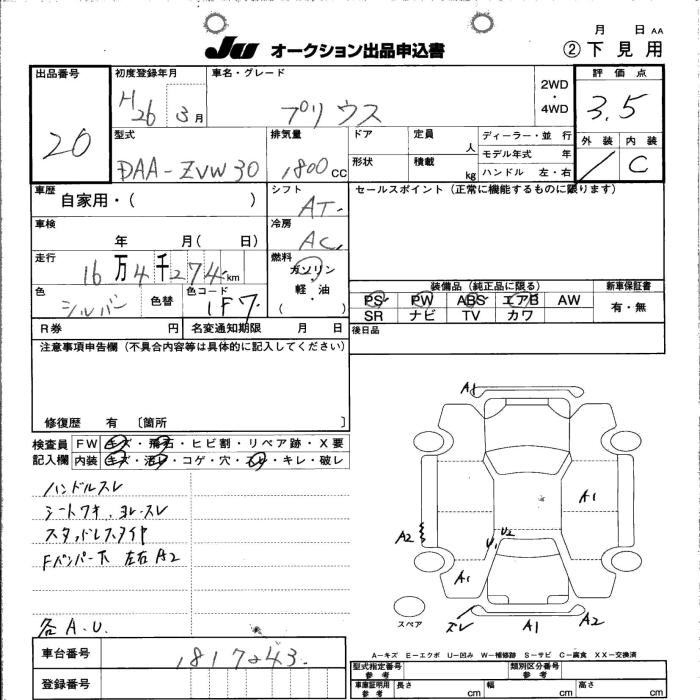 月 日 AA
JU オークション出品申込書 ②下見用
出品番号 初度登録年月 車名・グレード 2WD・4WD 評価点
20 H26 3月 プリウス 3.5
型式 排気量 ドア 定員 人 ディーラー・並行 外装 内装
DAA-ZVW30 1800 CC 形状 積載 kg モデル年式 年 / C
ハンドル 左・右
車歴 自家用・( ) シフト AT セールスポイント(正常に機能するものに限ります)
車検 年 月( 日) 冷房 AC
走行 16万4千274km 燃料 ガソリン・軽油 ( )
色 シルバー 色替 色コード 1F7
装備品(純正品に限る) 新車保証書
PS PW ABS エアB AW 有・無
SR ナビ TV カワ
R券 円 名変通知期限 月 日 後日品
注意事項申告欄(不具合内容等は具体的に記入してください)
修復歴 有 〔箇所 〕
検査員記入欄 FW キズ・飛石・ヒビ割・リペア跡・X要
内装 キズ・汚レ・コゲ・穴・スレ・キレ・破レ
ハンドルスレ
シートワキ、ヨレ・スレ
スタッドレスタイヤ
Fバンパー下 左右A2
各A.U.
A1
A1
A2
U1 U2
A1
スペア
ズレ A1 A2
A-キズ E-エクボ U-凹み W-補修跡 S-サビ C-腐食 XX-交換済
車台番号 1817243
登録番号
型式指定番号 参考 類別区分番号 参考
車庫証明用 参考 長さ cm 幅 cm 高さ cm